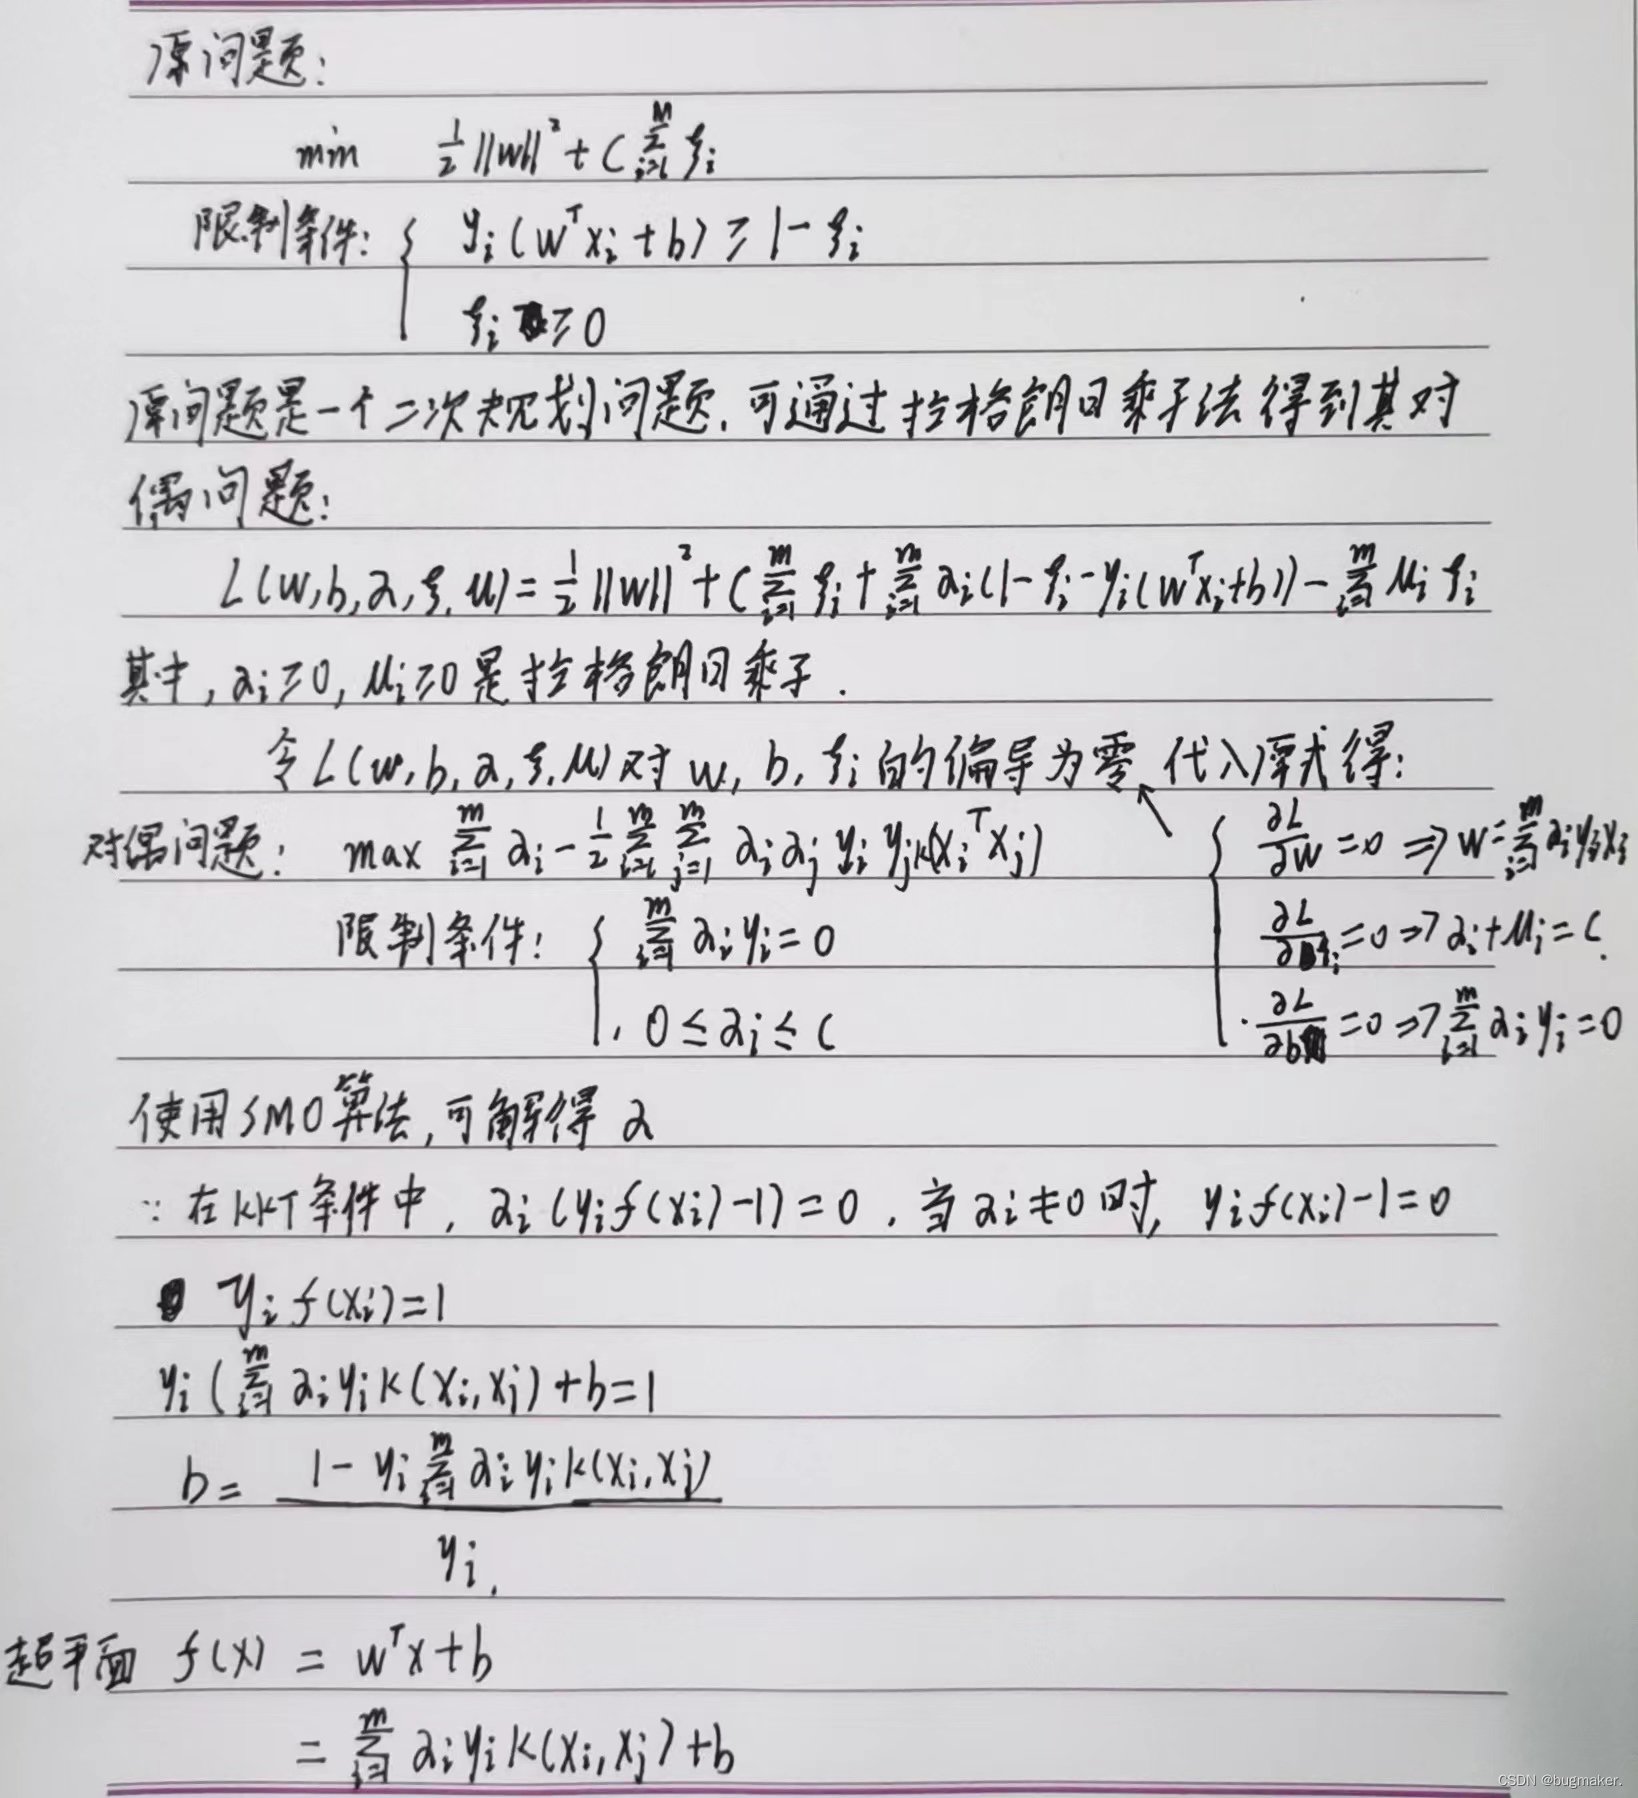 原问题:
min ½||w||² + C∑ᵢ₌₁ᵐ ξᵢ
限制条件: { yᵢ(wᵀxᵢ+b) ≥ 1-ξᵢ
ξᵢ ≥ 0
原问题是一个二次规划问题,可通过拉格朗日乘子法得到其对
偶问题:
L(w,b,α,ξ,μ) = ½||w||² + C∑ᵢ₌₁ᵐ ξᵢ + ∑ᵢ₌₁ᵐ αᵢ(1-ξᵢ-yᵢ(wᵀxᵢ+b)) - ∑ᵢ₌₁ᵐ μᵢξᵢ
其中,αᵢ≥0,μᵢ≥0是拉格朗日乘子.
令L(w,b,α,ξ,μ)对w,b,ξᵢ的偏导为零 代入原式得:
对偶问题: max ∑ᵢ₌₁ᵐ αᵢ - ½∑ᵢ₌₁ᵐ∑ⱼ₌₁ᵐ αᵢαⱼyᵢyⱼk(xᵢᵀxⱼ)
限制条件: { ∑ᵢ₌₁ᵐ αᵢyᵢ=0
0≤αᵢ≤C
{ ∂L/∂w=0 ⇒ w=∑ᵢ₌₁ᵐ αᵢyᵢxᵢ
∂L/∂ξᵢ=0 ⇒ αᵢ+μᵢ=C.
∂L/∂b=0 ⇒ ∑ᵢ₌₁ᵐ αᵢyᵢ=0
使用SMO算法,可解得α
∵在KKT条件中,αᵢ(yᵢf(xᵢ)-1)=0,当αᵢ≠0时,yᵢf(xᵢ)-1=0
yᵢf(xᵢ)=1
yᵢ(∑ᵢ₌₁ᵐ αᵢyᵢk(xᵢ,xⱼ)+b=1
b= 1-yᵢ∑ᵢ₌₁ᵐ αᵢyᵢk(xᵢ,xⱼ)
yᵢ
超平面 f(x) = wᵀx+b
= ∑ᵢ₌₁ᵐ αᵢyᵢk(xᵢ,xⱼ)+b
CSDN @bugmaker.